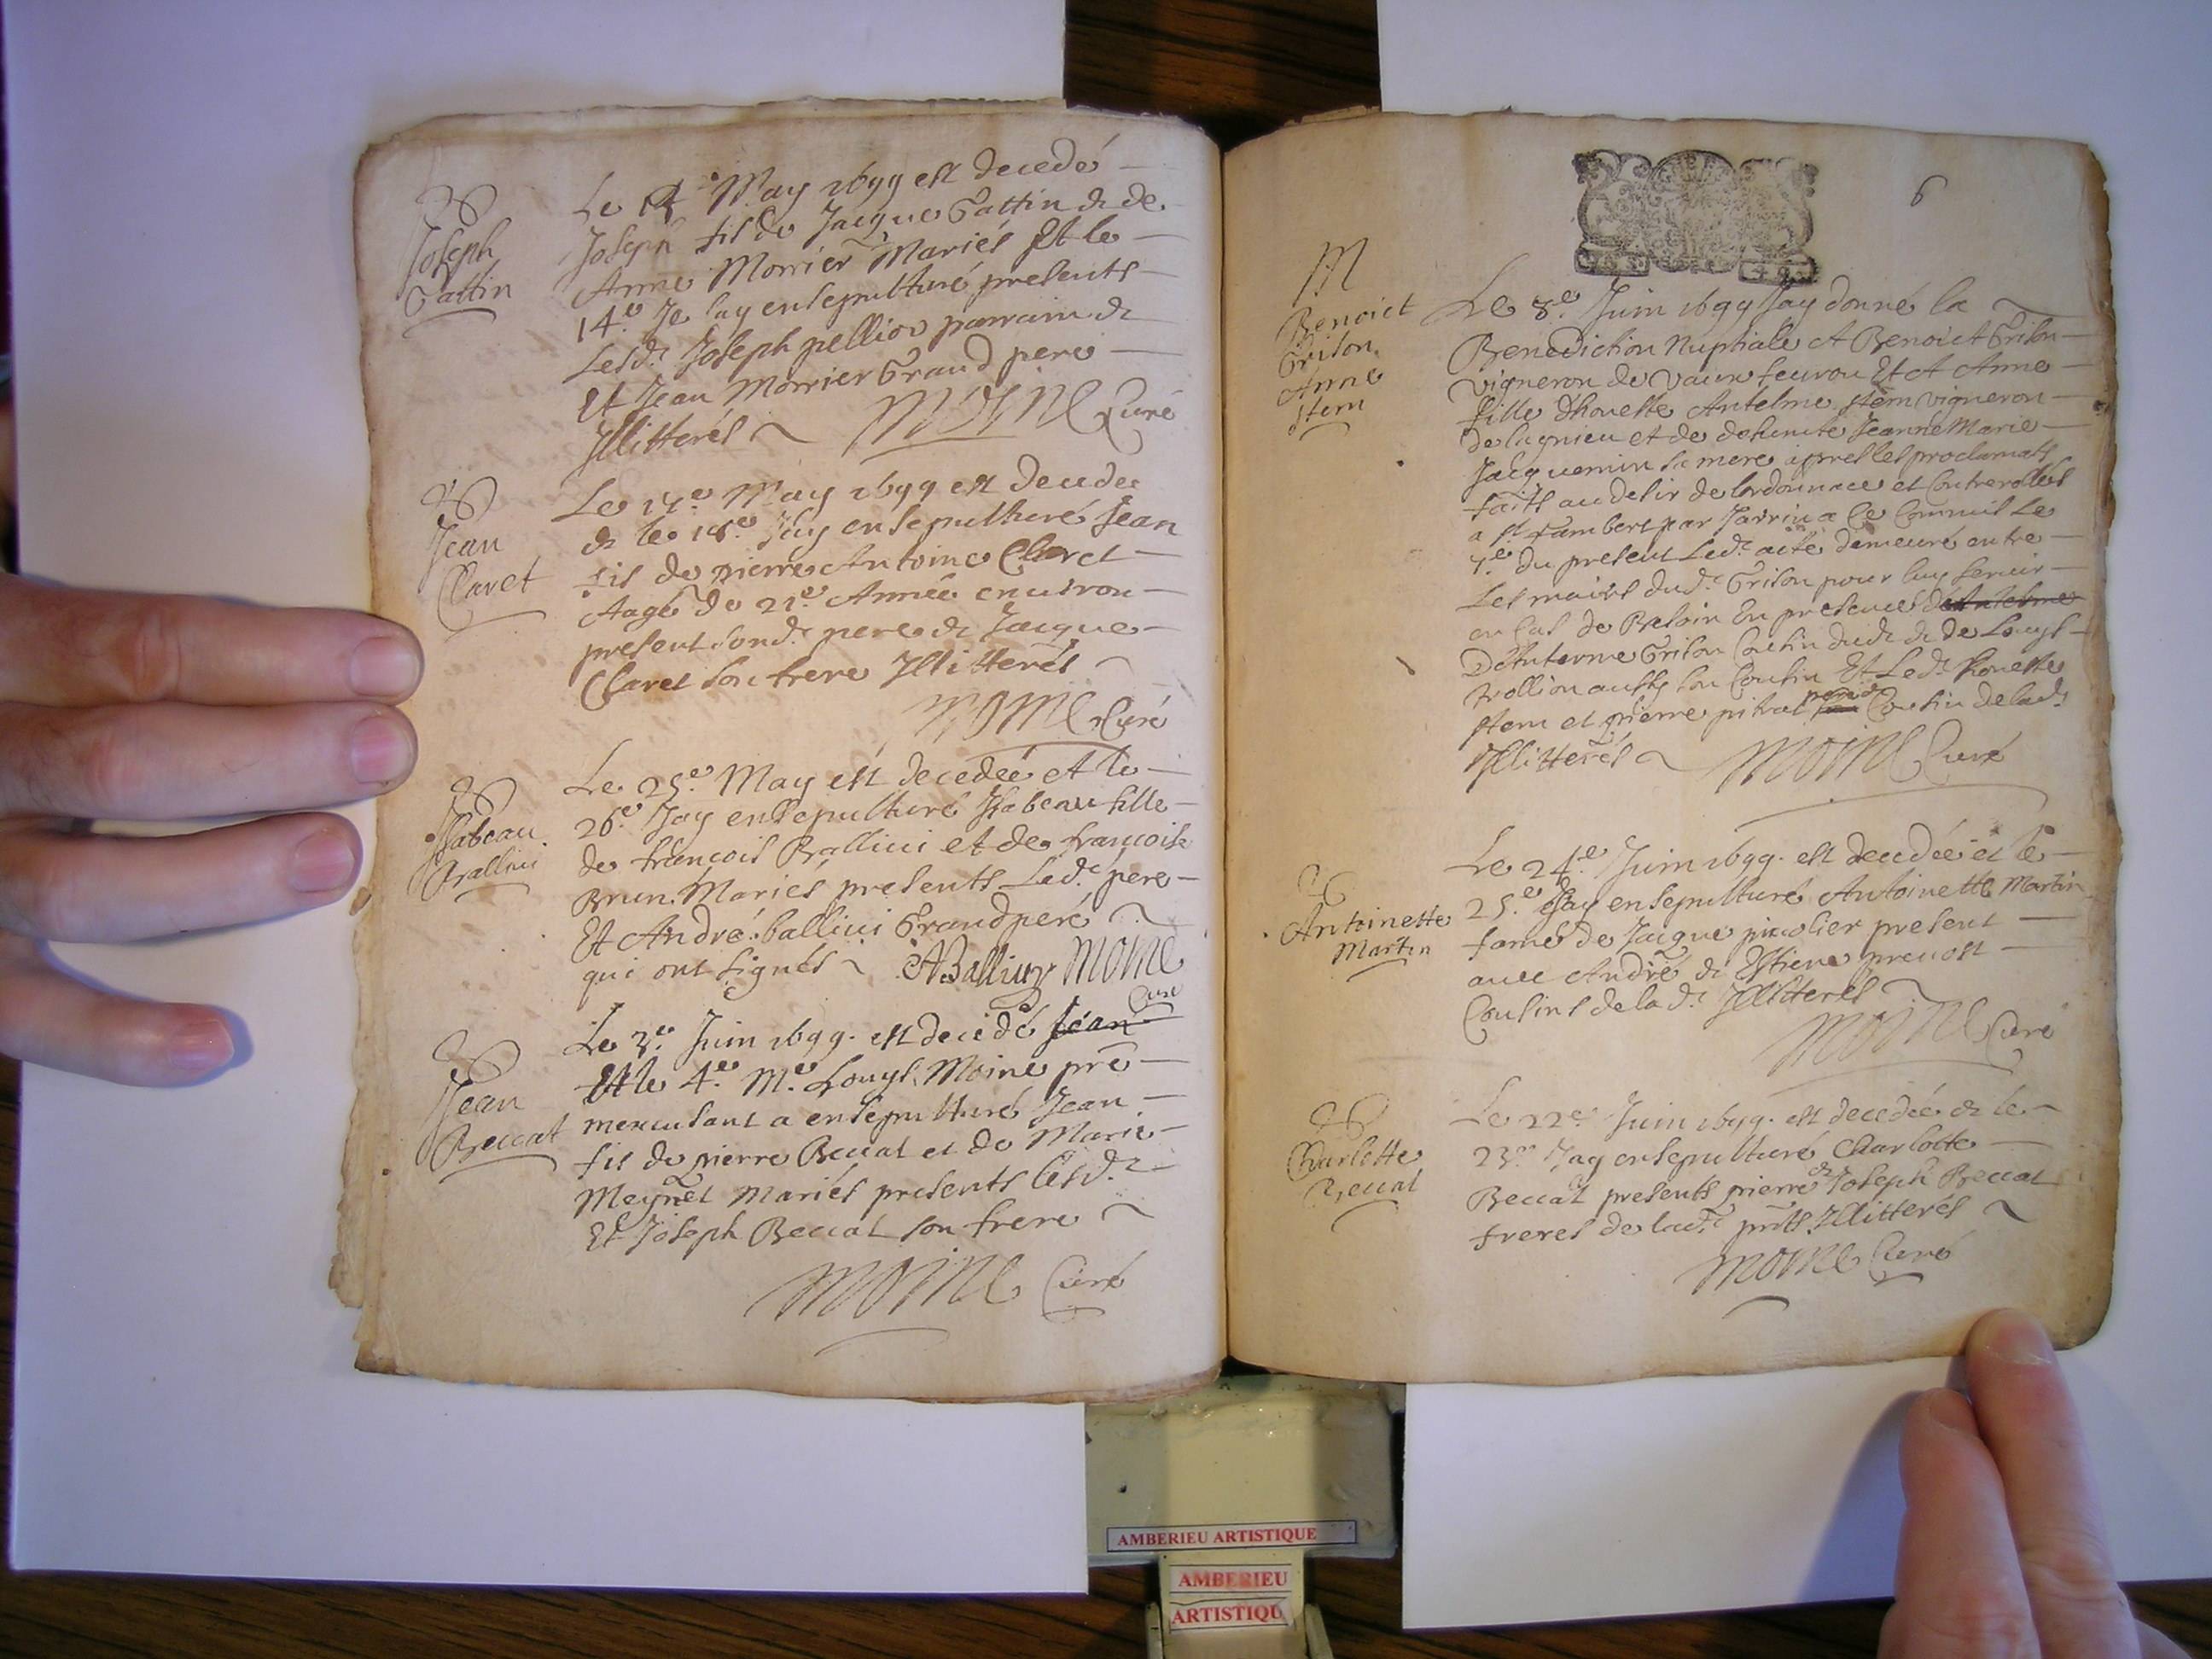 Joseph
Gattin
Le 13 May 1699 est decedé
Joseph fils de Jacque Gattin & de
Anne Morrier Mariés Et le
14.e Je lay ensepulturé presents
Lesd. Joseph pellion parrain &
Et Jean Morrier Grand pere
Illitterés MOINE Curé
Jean
Claret
Le 17.e May 1699 est decedee
& le 18.e Jay ensepulturé Jean
fils de pierre Antoine Claret
Aagé de 21.e Année environ
present sond. pere & Jacque
Claret son frere Illitterés
MOINE Curé
Isabeau
Ballini
Le 25.e May est decedée et le
26.e Jay ensepulturé Isabeau fille
de francois Ballini et de francoise
Brun Mariés presents Led. pere
Et André ballini Grand pere
qui ont signés ABalliny MOINE
Curé
Jean
Beccat
Le 3.e Juin 1699. est decedé Jean
Et le 4.e M.e Louys Moine pre
mersulant a ensepulturé Jean
fils de pierre Beccat et de Marie
Meynet Mariés presents lesd.
Et Joseph Beccat son frere
MOINE Curé
6
M
Benoict
Grison
Anne
Stem
Le 8.e Juin 1699 Jay donné la
Benediction Nuptiale A Benoict Grison
vigneron de vaux fevrou Et A Anne
fille d'honeste Antelme Stem vigneron
de lagnieu et de defuncte Jeanne Marie
Jacquemin sa mere apres les proclamats
faits au desir de lordonnace et Controlles
a St Rambert par Jarrin a Ce Commis Le
7.e du present Led. acte demeuré entre
Les mains dud. Grison pour luy servir
en Cas de Besoin En presence d'Antelme
D'Antoine Grison Cousin dud. & de Louys
trollion aussy son Cousin Et Led. honeste
Stem et pierre pitrat Cousin de lad.
Illitterés MOINE Curé
Antoinette
Martin
Le 24.e Juin 1699. est decedée et le
25.e Jay ensepulturé Antoinette Martin
famé de Jacque pinolier present
avec André & Estiene prevost
Cousins de la d. Illitterés
MOINE Curé
Charlotte
Beccat
Le 22.e Juin 1699. est decedée & le
23.e Jay ensepulturé Charlotte
Beccat presents pierre & Joseph Beccat
freres de lad. pnts Illitterés
MOINE Curé
AMBERIEU ARTISTIQUE
AMBERIEU
ARTISTIQU